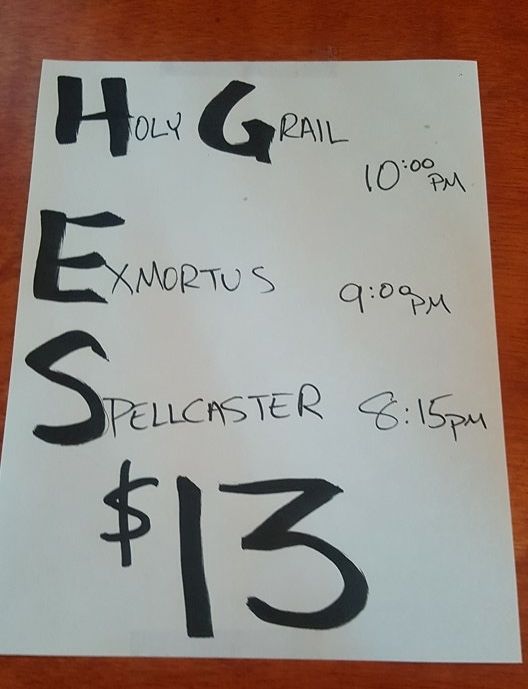 HOLY GRAIL
10:00 PM
EXMORTUS 9:00 PM
SPELLCASTER 8:15 PM
$13